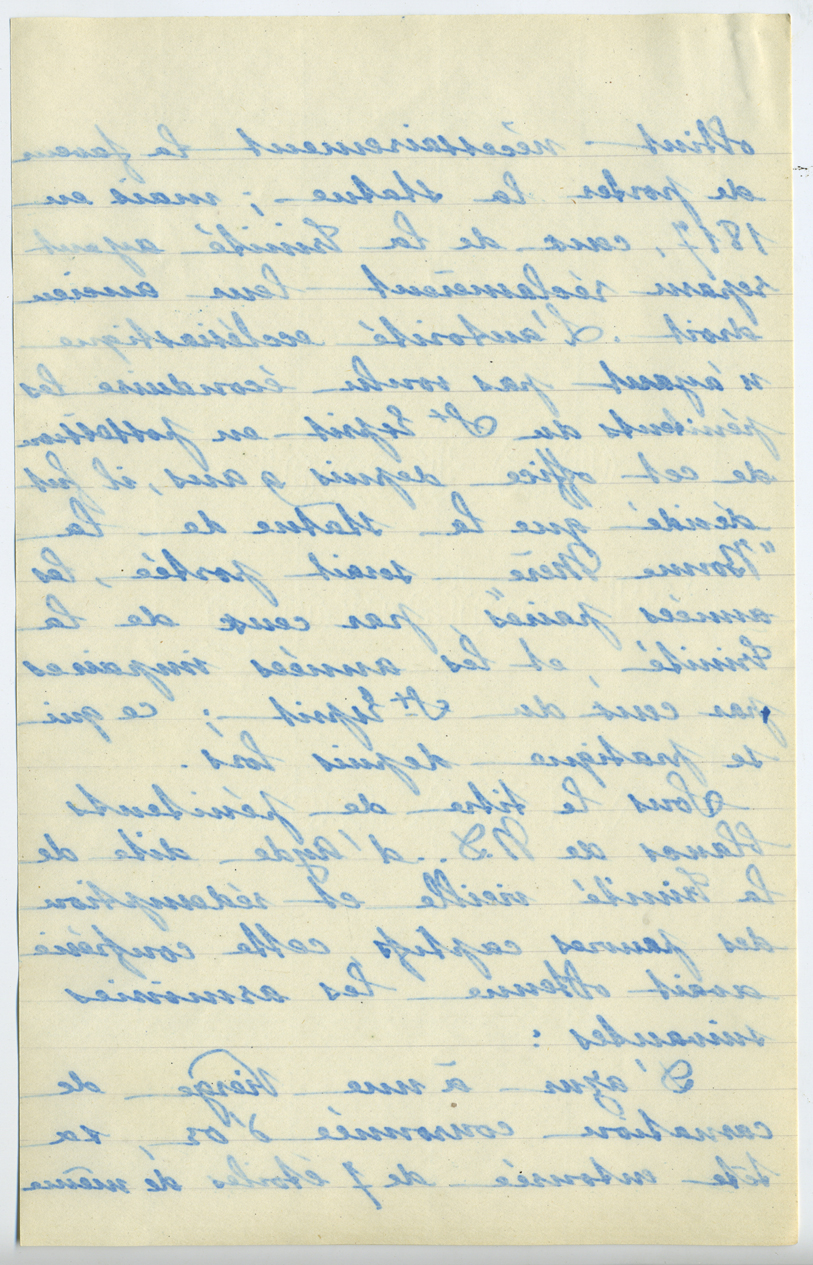 obtint nécessairement la faveur
de porter la statue ; mais en
1817, ceux de la Trinité ayant
reparu réclamèrent leur ancien
droit. L'autorité ecclésiastique
n'ayant pas voulu éconduire les
pénitents du St Esprit en possession
de cet office depuis 9 ans, il fut
décidé que la statue de la
"Bonne Mère" serait portée, les
années paires, par ceux de la
Trinité, et les années impaires
par ceux du St Esprit ; ce qui
se pratique depuis lors.
Sous le titre de pénitents
blancs de N.D. d'Agde dite de
la Trinité vieille et rédemption
des pauvres captifs, cette confrérie
avait obtenu les armoiries
suivantes :
D'azur à une Vierge de
carnation couronnée d'or, sa
tête entourée de 7 étoiles de même